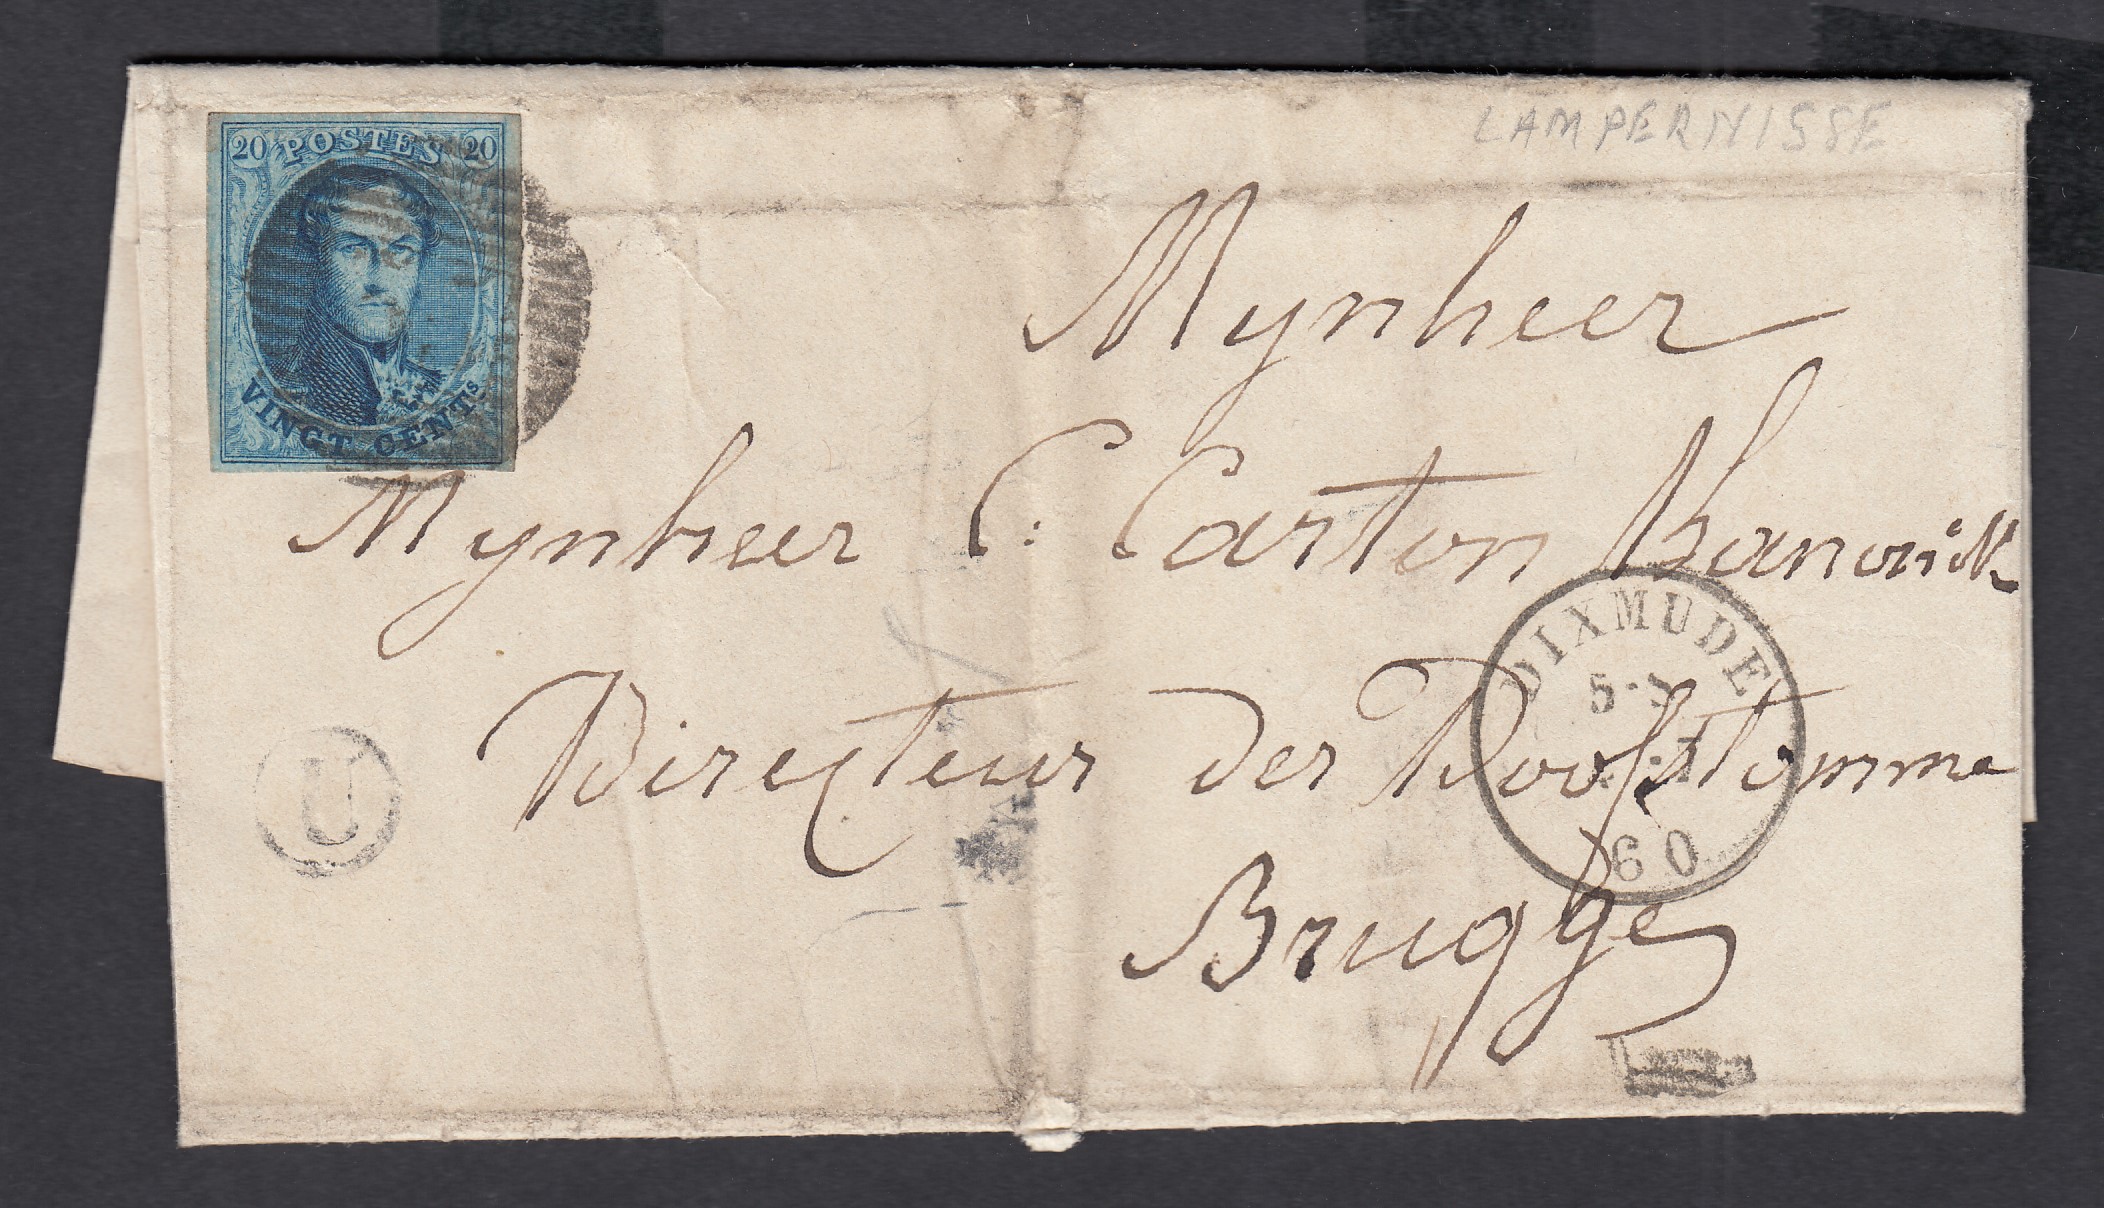 LAMPERNISSE
20 POSTES 20
VINGT CENTS
Mynheer
Mynheer C: Carton
DIXMUDE
5-
60
Directeur der
U
Brugge